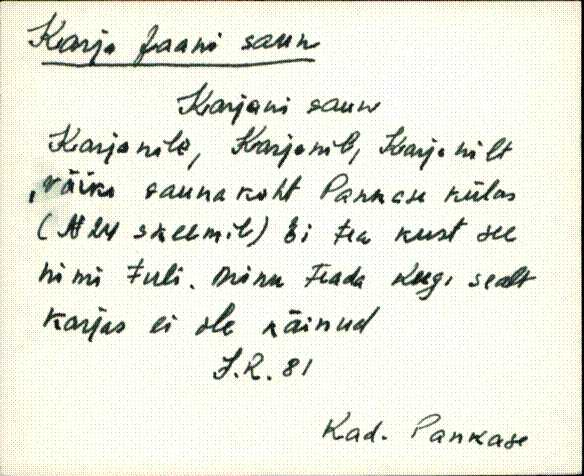 Karja Jaani saun
Karjani saun
Karjanile, Karjanil, Karjanilt
väike saunakoht Pankase külas
(N 24 skeemil) Ei tea kust see
nimi tuli. Minu teada keegi sealt
karjas ei ole käinud
J.R. 81
Kad. Pankase